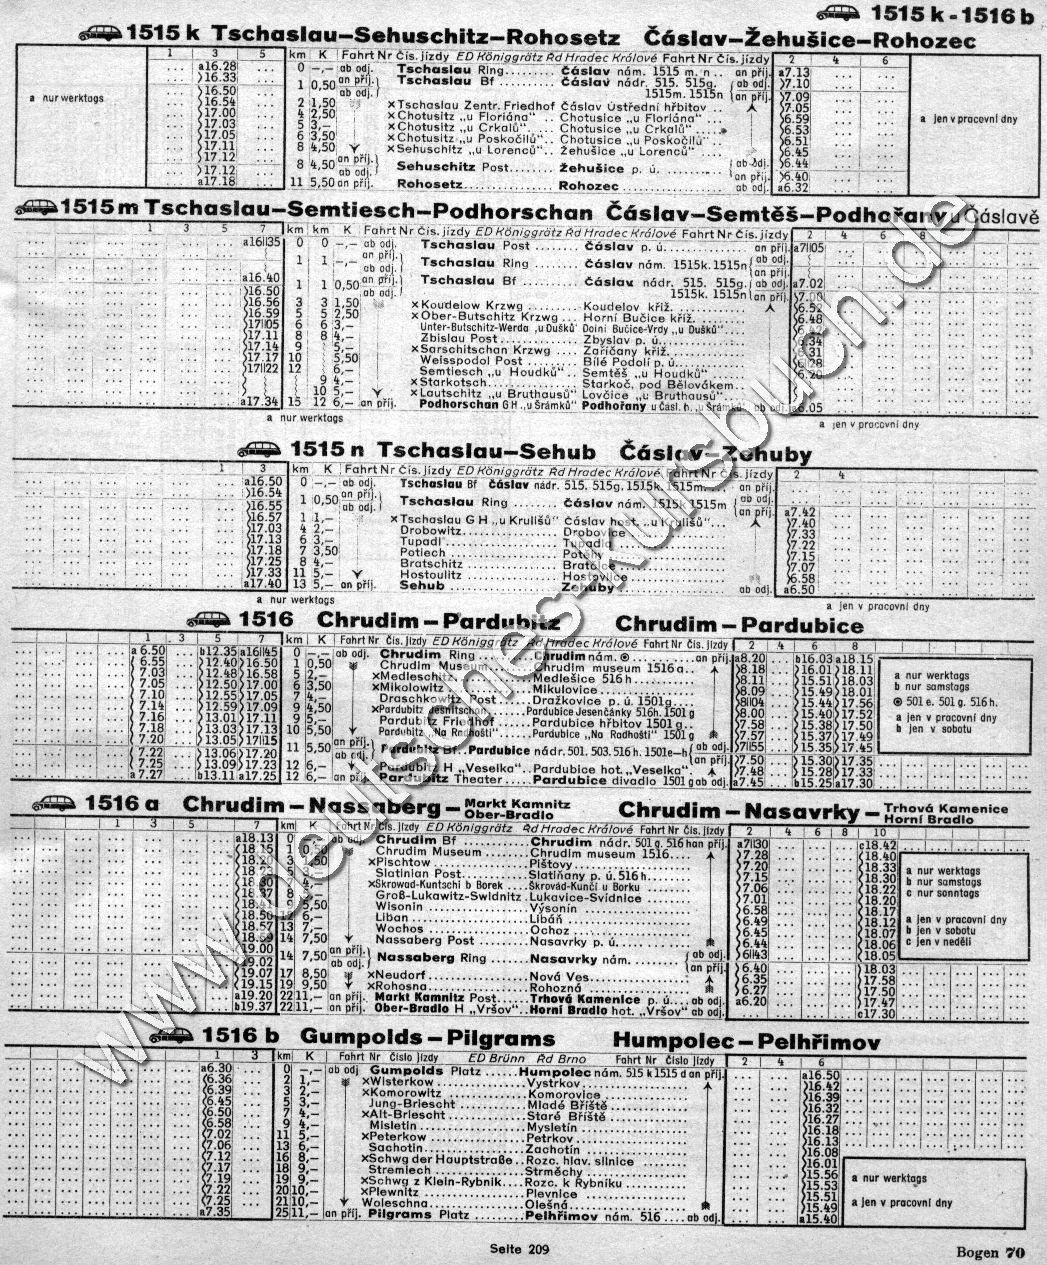 1515 k - 1516 b
1515 k Tschaslau–Sehuschitz–Rohosetz Čáslav–Žehušice–Rohozec
1 3 5 km K Fahrt Nr Čís. jízdy ED Königgrätz Řd Hradec Králové Fahrt Nr Čís. jízdy 2 4 6
a16.28 0 –,– ab odj. Tschaslau Ring Čáslav nám. 1515 m. n an příj. a7.13
16.33 1 0,50 an příj. Tschaslau Bf Čáslav nádr. 515. 515g. ab odj. 7.10
16.50 ab odj. 1515m. 1515n an příj. 7.09
16.54 2 1,50 ×Tschaslau Zentr. Friedhof Čáslav Ústřední hřbitov 7.05
17.00 4 2,50 ×Chotusitz „u Floriána“ Chotusice „u Floriána“ 6.59
17.03 5 3,– ×Chotusitz „u Crkalů“ Chotusice „u Crkalů“ 6.53
17.05 6 3,50 ×Chotusitz „u Poskočilů“ Chotusice „u Poskočilů“ 6.51
17.11 8 4,50 ×Sehuschitz „u Lorenců“ Žehušice „u Lorenců“ 6.45
17.12 8 4,50 an příj. Sehuschitz Post Žehušice p. ú. ab odj. 6.44
17.12 ab odj. an příj. 6.40
a17.18 11 5,50 an příj. Rohosetz Rohozec ab odj. a6.32
a nur werktags
a jen v pracovní dny
1515 m Tschaslau–Semtiesch–Podhorschan Čáslav–Semtěš–Podhořany u Čáslavě
1 3 5 7 km km K Fahrt Nr Čís. jízdy ED Königgrätz Řd Hradec Králové Fahrt Nr Čís. jízdy 2 4 6 8
a16 35 0 0 –,– ab odj. Tschaslau Post Čáslav p. ú. an příj. a7 05
1 1 –,– an příj. Tschaslau Ring Čáslav nám. 1515k. 1515n ab odj.
ab odj. an příj.
a16.40 1 1 0,50 an příj. Tschaslau Bf Čáslav nádr. 515. 515g. ab odj. a7.02
16.50 ab odj. 1515k. 1515n an příj. 7.00
16.56 3 3 1,50 ×Koudelow Krzwg Koudelov kříž. 6.52
16.59 5 5 2,50 ×Ober-Butschitz Krzwg Horní Bučice kříž. 6.48
17 05 6 6 3,– Unter-Butschitz-Werda „u Dušků“ Dolní Bučice-Vrdy „u Dušků“ 6.42
17.11 8 8 4,– Zbislau Post Zbyslav p. ú. 6.34
17.14 9 5,– ×Sarschitschan Krzwg Zaříčany kříž. 6.31
17.17 10 5,50 Weisspodol Post Bílé Podolí p. ú. 6 28
17 22 12 6,– Semtiesch „u Houdků“ Semtěš „u Houdků“ 6.20
9 4,– ×Starkotsch Starkoč, pod Bělovákem
10 5,– ×Lautschitz „u Bruthausů“ Lovčice „u Bruthausů“
a17.34 15 12 6,– an příj. Podhorschan GH „u Šrámků“ Podhořany u Čásl. h. „u Šrámků“ ab odj. a6.05
a nur werktags a jen v pracovní dny
1515 n Tschaslau–Sehub Čáslav–Zehuby
1 3 km K Fahrt Nr Čís. jízdy ED Königgrätz Řd Hradec Králové Fahrt Nr Čís. jízdy 2 4
a16.50 0 –,– ab odj. Tschaslau Bf Čáslav nádr. 515. 515g. 1515k. 1515m an příj.
16.54 1 0,50 an příj. Tschaslau Ring Čáslav nám. 1515k. 1515m ab odj.
16.55 ab odj. an příj. a7.42
16.57 1 1,– ×Tschaslau GH „u Krulišů“ Čáslav host. „u Krulišů“ 7.40
17.03 4 2,– Drobowitz Drobovice 7.33
17.13 6 3,– Tupadl Tupadla 7.22
17.18 7 3,50 Potiech Potěhy 7.15
17.25 8 4,– Bratschitz Bratčice 7.07
17.33 11 5,– Hostoulitz Hostovlice 6.58
a17.40 13 5,– an příj. Sehub Zehuby ab odj. a6.50
a nur werktags a jen v pracovní dny
1516 Chrudim–Pardubitz Chrudim–Pardubice
1 3 5 7 km K Fahrt Nr Čís. jízdy ED Königgrätz Řd Hradec Králové Fahrt Nr Čís. jízdy 2 4 6 8
a 6.50 b12.35 a16 45 0 –,– ab odj. Chrudim Ring Chrudim nám. ⦿ an příj. a8.20 b16.03 a18.15
6.55 12.40 16.50 1 0,50 Chrudim Museum Chrudim museum 1516a 8.18 16.01 18.13
7.03 12.48 16.58 5 2,– ×Medleschitz Medlešice 516h 8.11 15.51 18.03
7.05 12.50 17.00 6 3,50 ×Mikolowitz Mikulovice 8.09 15.49 18.01
7.10 12.55 17.05 7 4,– Draschkowitz Post Dražkovice p. ú. 1501g 8 04 15.44 17.56
7.14 12.59 17.09 9 4,50 ×Pardubitz Jesnitschan Pardubice Jesenčánky 516h. 1501g 8.00 15.40 17.52
7.16 13.01 17.11 9 5,– Pardubitz Friedhof Pardubice hřbitov 1501g 7.58 15.38 17.50
7.18 13.03 17.13 10 5,50 Pardubitz „Na Radhošti“ Pardubice „Na Radhošti“ 1501g 7.57 15.37 17.49
7.20 13.05 17 15 11 5,50 an příj. Pardubitz Bf Pardubice nádr. 501. 503. 516h. 1501e–h ab odj. 7 55 15.35 17.45
7.22 13.06 17.20 ab odj. an příj. 7.50 15.30 17.35
7.25 13.09 17.23 12 6,– Pardubitz H „Veselka“ Pardubice hot. „Veselka“ 7.48 15.28 17.33
a 7.27 b13.11 a17.25 12 6,– an příj. Pardubitz Theater Pardubice divadlo 1501g ab odj. a7.45 b15.25 a17.30
a nur werktags
b nur samstags
⦿ 501e. 501g. 516h.
a jen v pracovní dny
b jen v sobotu
1516 a Chrudim–Nassaberg– Markt Kamnitz Ober-Bradlo Chrudim–Nasavrky– Trhová Kamenice Horní Bradlo
1 3 5 7 km K Fahrt Nr Čís. jízdy ED Königgrätz Řd Hradec Králové Fahrt Nr Čís. jízdy 2 4 6 8 10
a18.13 0 –,– ab odj. Chrudim Bf Chrudim nádr. 501g. 516h an příj. a7 30 c18.42
18.15 1 0,50 Chrudim Museum Chrudim museum 1516 7.28 18.40
18.20 3 ×Pischtow Pištovy 7.20 18.33
Slatinian Post Slatiňany p. ú. 516h 7.15 18.30
×Škrowad-Kuntschi b Borek Škrovád-Kunčí u Borku 7.06 18.22
Groß-Lukawitz-Swidnitz Lukavice-Svídnice 7.01 18.20
5,50 Wisonin Výsonín 6.58 18.17
18.50 6,– Liban Libáň 6.49 18.12
18.57 13 7,– Wochos Ochoz 6.45 18.07
18.59 14 7,50 Nassaberg Post Nasavrky p. ú. 6.44 18.06
19.00 14 7,50 an příj. Nassaberg Ring Nasavrky nám. ab odj. 6 43 18.05
19.02 ab odj. an příj. 6.40 18.03
19.07 17 8,50 ×Neudorf Nová Ves 6.35 17.58
19.15 19 9,50 ×Rohosna Rohozná 6.27 17.50
a19.20 22 11,– an příj. Markt Kamnitz Post Trhová Kamenice p. ú. ab odj. a6.20 17.47
b19.37 22 11,– an příj. Ober-Bradlo H „Vršov“ Horní Bradlo hot. „Vršov“ ab odj. c17.30
a nur werktags
b nur samstags
c nur sonntags
a jen v pracovní dny
b jen v sobotu
c jen v neděli
1516 b Gumpolds–Pilgrams Humpolec–Pelhřimov
1 3 km K Fahrt Nr Číslo jízdy ED Brünn Řd Brno Fahrt Nr Číslo jízdy 2 4 6
a6.30 0 –,– ab odj Gumpolds Platz Humpolec nám. 515k 1515d an příj. a16.50
6.36 2 1,– ×Wisterkow Vystrkov 16.42
6.39 3 2,– ×Komorowitz Komorovice 16.39
6.45 5 3,– Jung-Briescht Mladé Bříště 16.32
6.50 7 4,– ×Alt-Briescht Staré Bříště 16.27
6.58 9 4,– Misletin Mysletín 16.18
7.02 11 5,– ×Peterkow Petrkov 16.13
7.06 13 6,– Sachotin Zachotín 16.08
7.12 16 8,– ×Schwg der Hauptstraße Rozc. hlav. silnice 16.01
7.17 18 9,– Stremiech Strměchy 15.56
7.19 19 9,– ×Schwg z Klein-Rybnik Rozc. k Rybníku 15.53
7.22 20 10,– ×Plewnitz Plevnice 15.51
7.25 21 10,– Woleschna Olešná 15.49
a7.35 25 11,– an příj. Pilgrams Platz Pelhřimov nám. 516 ab odj. a15.40
a nur werktags
a jen v pracovní dny
Seite 209
Bogen 70
www.deutsches-kursbuch.de